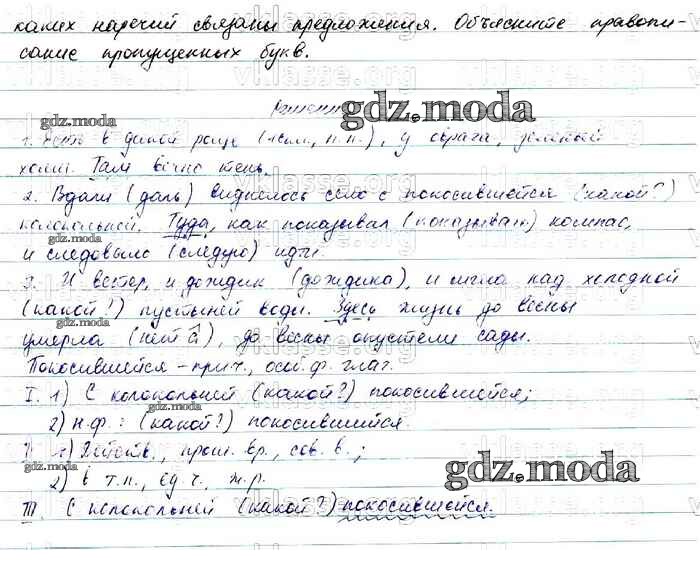 каких наречий связаны предложения. Объясните правопи-
сание пропущенных букв.
gdz.moda
1. Есть в дикой роще (ж.скл., п.п.), у оврага, зеленый
холм. Там вечно тень.
2. Вдали (даль) виднелось село с покосившейся (какой?)
колокольней. Туда, как показывал (показываю) компас,
и следовало (следую) идти.
3. И ветер, и дождик (дождика), и мгла над холодной
(какой?) пустыней воды. Здесь жизнь до весны
умерла (нет а), до весны опустели сады.
Покосившейся - прич., осн. ф. глаг.
I. 1) С колокольней (какой?) покосившейся;
2) н.ф.: (какой?) покосившийся.
1) Действ., прош. вр., сов. в.;
2) в т.п., ед.ч., ж.р.
III. С колокольней (какой?) покосившейся.